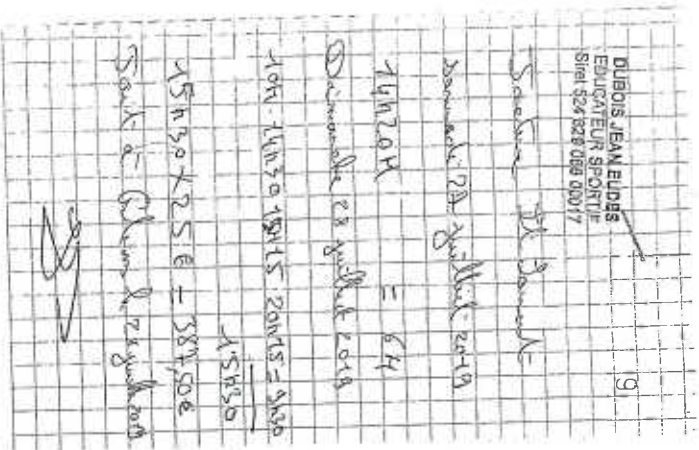 DUBOIS JEAN EUDES
EDUCATEUR SPORTIF
Siret 524 828 088 00017
9
samedi 27 juillet 2019
14h20H = 6H
Dimanche 28 juillet 2019
10h-14h30 15H15-20h15 = 9h30
15h30
15h30 x 25€ = 387,50€
Fait à 28 juil 2019